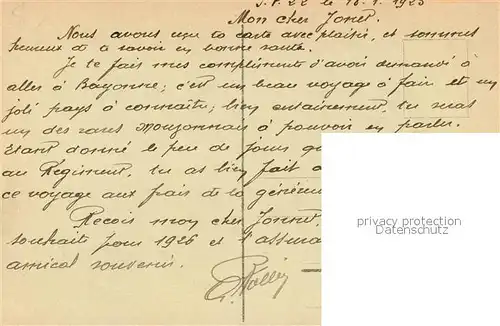 S.P. 22 le 10.1.1925
Mon cher Jonet
Nous avons reçu ta carte avec plaisir, et sommes
heureux de te savoir en bonne santé.
Je te fais mes compliments d'avoir demandé à
aller à Bayonne; c'est un beau voyage à fair et un
joli pays à connaître; bien certainement, tu seras
un des rares Mouzonnais à pouvoir en parler.
Etant donné le peu de jours
au Régiment, tu as bien fait
ce voyage aux frais de la
Reçois mon cher Jonnet,
souhaits pour 1926 et l'assura
amical souvenir.
privacy protection
Datenschutz